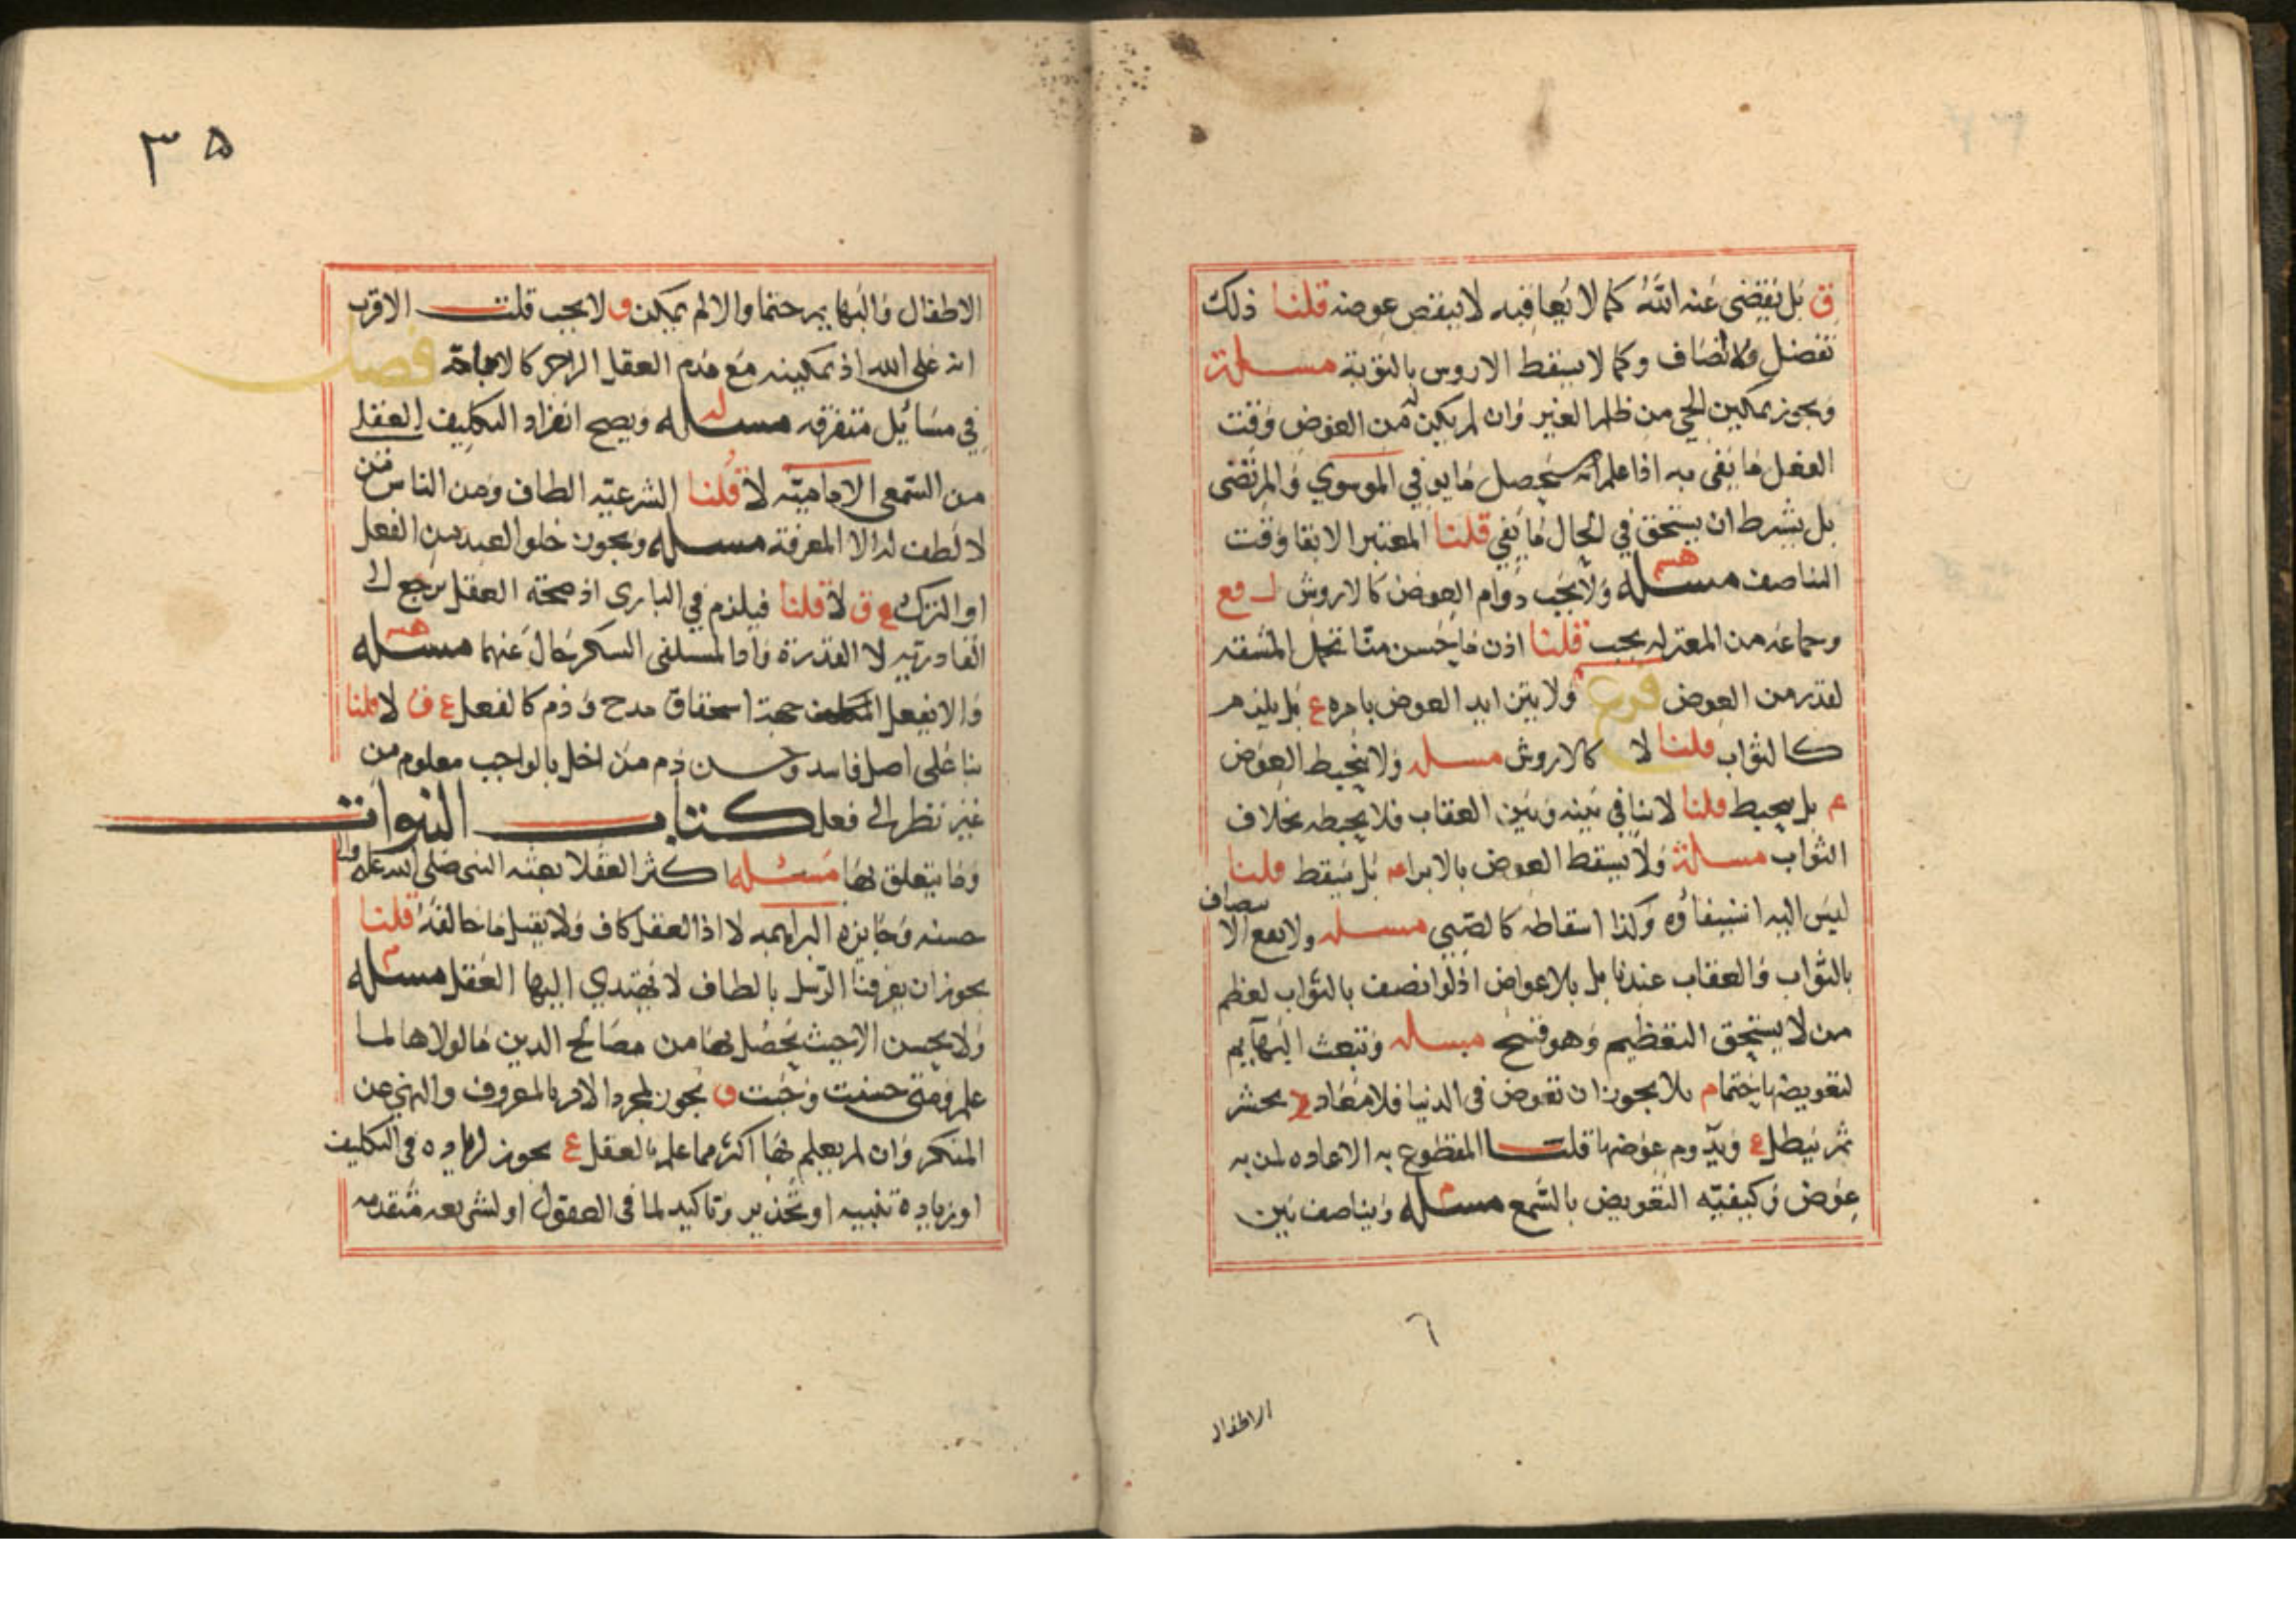 ق بل يقضى عنه الله كما لا يعاقبه لا ينقص عوضه قلنا ذلك
تفضل ولا انصاف وكما لا يسقط الاروش بالتوبة مسئلة
ويجوز تمكين الحي من ظلم الغير وان لم يكن له من العوض وقت
الفعل ما يفى به اذا علم انه سيحصل ما يوفي الموسوي والمرتضى
بل يشرط ان يستحق في الحال ما يفي قلنا المعتبر الايفا وقت
التناصف مسئله ولا يجب دوام العوض كالاروش ل فع
وجماعه من المعتزله يجب قلنا اذن ما حسن منا تحمل المشقه
لقدر من العوض فرع ولا يتزايد العوض باخره ع بل يلزم
كالثواب قلنا لا كالاروش مسله ولا ينحبط العوض
م بل ينحبط قلنا لا تنافي بينه وبين العقاب فلا يحبطه بخلاف
الثواب مسئلة ولا يسقط العوض بالابراء م بل يسقط قلنا
ليس اليه استيفاؤه وكذا اسقاطه كالصبي مسله ولا يقع الانصاف
بالثواب والعقاب عندنا بل بالاعواض اذ لو انصف بالثواب لعظم
من لا يستحق التعظيم وهو قبيح مسله وتبعث البهايم
لتعويضها حتما م بلا يجوز ان تعوض في الدنيا فلا معاد ع يحشر
ثم يبطل ع ويدوم عوضها قلت المقطوع به الاعاده لمن به
عوض وكيفيه التعويض بالسمع مسئله ويناصف بين
٦
الاطفال
٣٥
الاطفال والبهايم حتما والا لم يمكن ق لا يجب قلت الاقرب
انه على الله اذ تمكينه مع عدم العقل الزاجر كالاباحة فصل
في مسائل متفرقه مسئله ويصح انفراد التكليف العقلي
من السمعى الاماميه لا قلنا الشرعيه الطاف ومن الناس من
لا لطف له الا المعرفة مسئله ويجوز خلو العبد من الفعل
او الترك ع ق لا قلنا فيلزم في البارى اذ صحة الفعل ترجع الى
القادريه لا القدرة واما المستلقى السكر حال عنهما مسئله
والا يفعل المكلف جهة استحقاق مدح وذم كالفعل ع ق لا قلنا
بنا على اصل فاسد وحسن ذم من اخل بالواجب معلوم من
غير نظر الى فعل كتاب النبوات
وما يتعلق بها مسئله اكثر العقلا بعثه النبى صلى الله عليه واله
حسنه وجايزه البراهمه لا اذ العقل كاف ولا يقبل ما خالفه قلنا
يجوز ان يعرفنا الرسل بالطاف لا يهتدي اليها العقل مسئله
ولا يحسن الا حيث يحصل بها من مصالح الدين ما لولاها لما
علم ومتى حسنت وجبت ق يجوز لمجرد الامر بالمعروف والنهي عن
المنكر وان لم يعلم بها اكثر مما علم بالعقل ع يجوز لزياده في التكليف
او زياده تنبيه او تحذير وتاكيد لما في العقول او لشريعه متقدمه